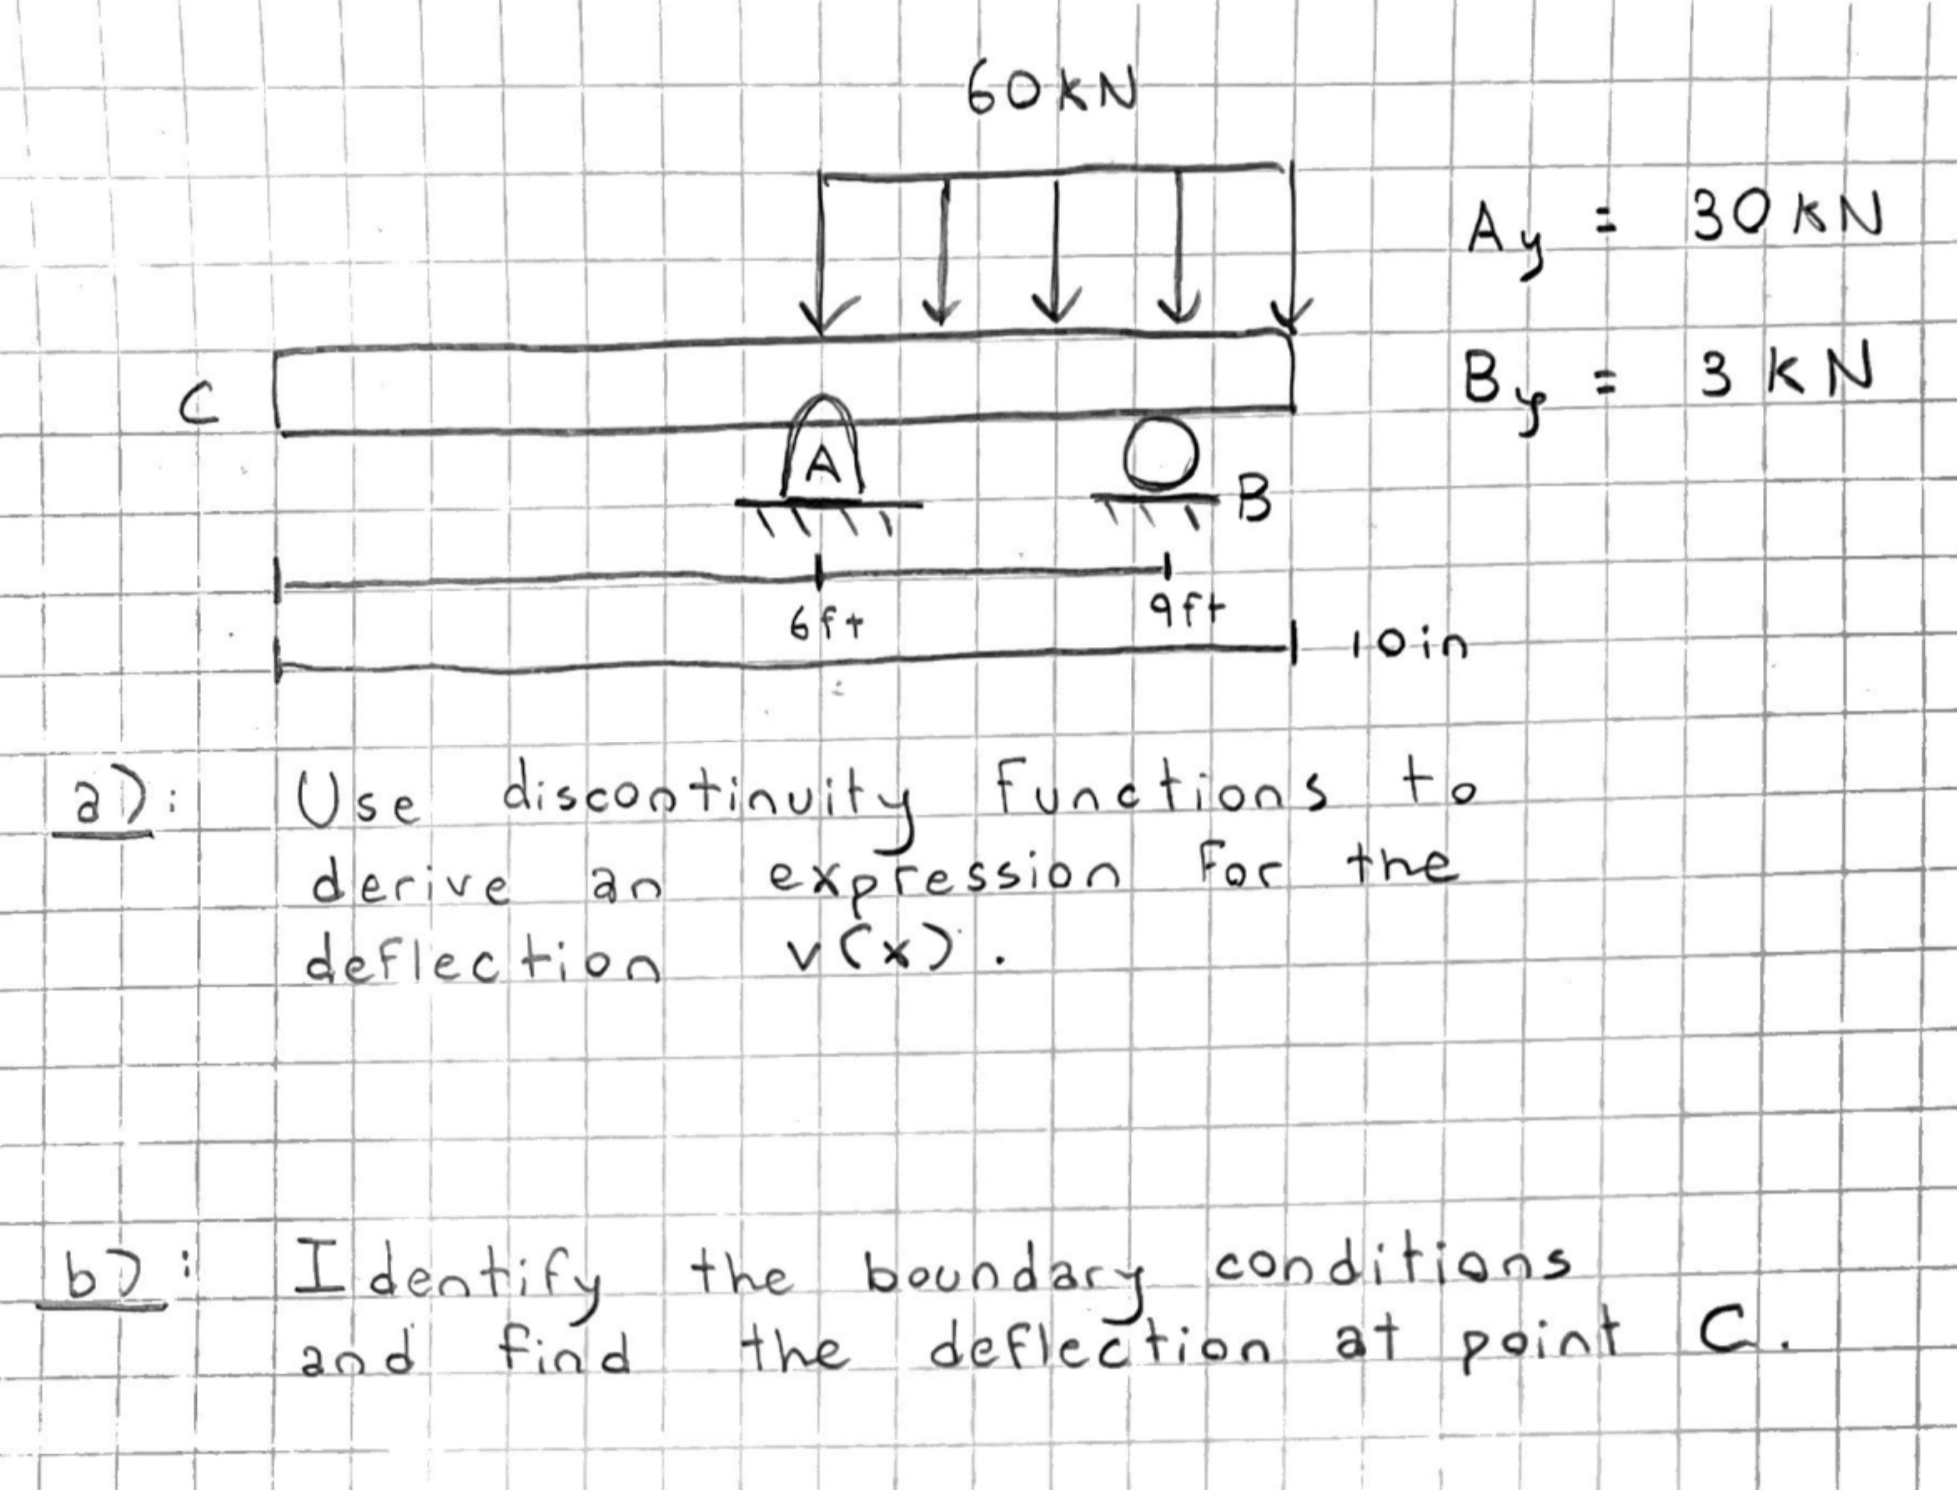 60kN
Ay = 30 kN
By = 3 kN
C
A
B
6ft
9ft
10in
a): Use discontinuity functions to
derive an expression for the
deflection v(x).
b): Identify the boundary conditions
and find the deflection at point C.